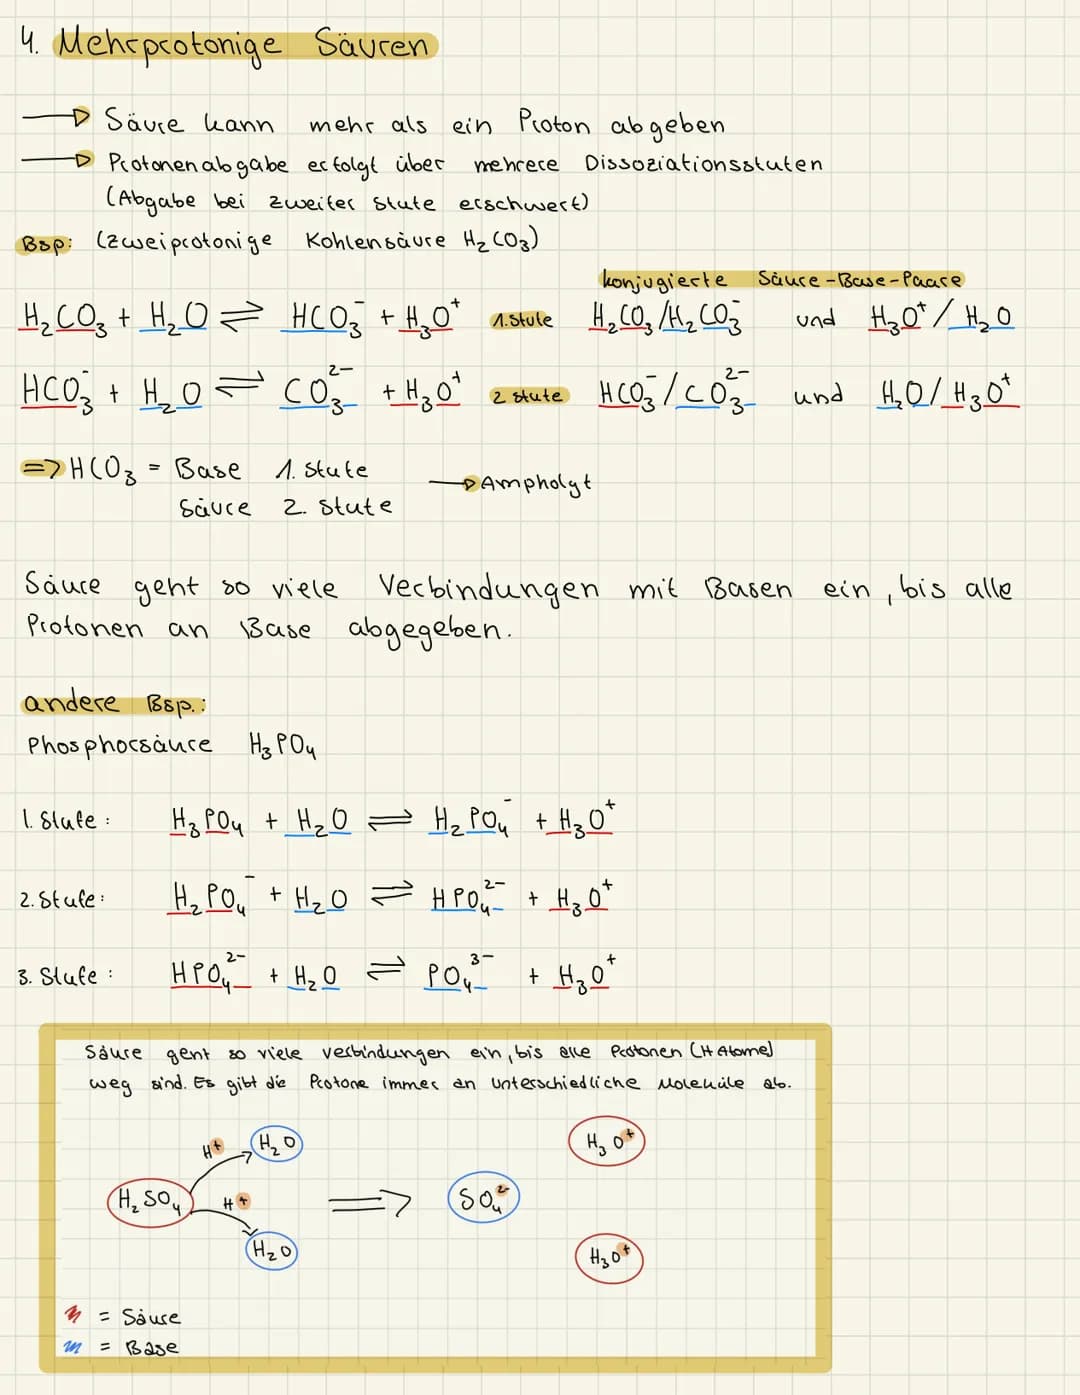 4. Mehrprotonige Säuren
→ Säure kann mehr als ein Proton abgeben
→ Protonenabgabe erfolgt über mehrere Dissoziationsstufen
(Abgabe bei zweiter Stufe erschwert)
Bsp: (zweiprotonige Kohlensäure H₂CO₃)
konjugierte Säure-Base-Paare
H₂CO₃ + H₂O ⇌ HCO₃⁻ + H₃O⁺ 1. Stufe H₂CO₃/H₂CO₃⁻ und H₃O⁺/H₂O
HCO₃⁻ + H₂O ⇌ CO₃²⁻ + H₃O⁺ 2 Stufe HCO₃⁻/CO₃²⁻ und H₂O/H₃O⁺
=> HCO₃ = Base 1. Stufe → Ampholyt
Säure 2. Stufe
Säure geht so viele Verbindungen mit Basen ein, bis alle
Protonen an Base abgegeben.
andere Bsp.:
Phosphorsäure H₃PO₄
1. Stufe: H₃PO₄ + H₂O ⇌ H₂PO₄⁻ + H₃O⁺
2. Stufe: H₂PO₄⁻ + H₂O ⇌ HPO₄²⁻ + H₃O⁺
3. Stufe: HPO₄²⁻ + H₂O ⇌ PO₄³⁻ + H₃O⁺
Säure geht so viele verbindungen ein, bis alle Protonen (H Atome)
weg sind. Es gibt die Protone immer an unterschiedliche Moleküle ab.
H⁺ H₂O H₃O⁺
H₂SO₄ H⁺ => SO₄²⁻
H₂O H₃O⁺
= Säure
= Base